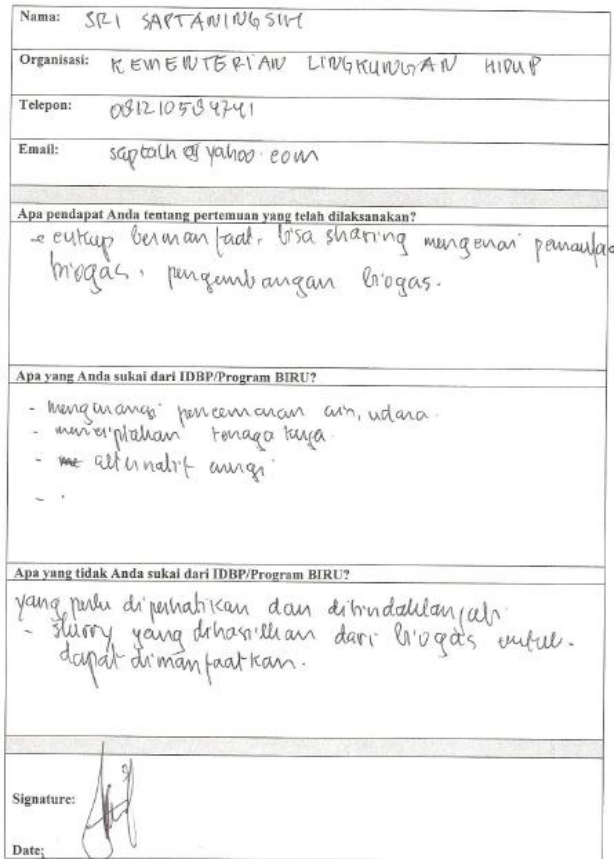 Nama: SRI SAPTANINGSIH
Organisasi: KEMENTERIAN LINGKUNGAN HIDUP
Telepon:
Email: @ yahoo.com
Apa pendapat Anda tentang pertemuan yang telah dilaksanakan?
cukup bermanfaat, bisa sharing mengenai
biogas, pengembangan biogas.
Apa yang Anda sukai dari IDBP/Program BIRU?
- mengurangi pencemaran air, udara.
- menciptakan tenaga kerja.
- alternatif energi
-
Apa yang tidak Anda sukai dari IDBP/Program BIRU?
yang perlu diperhatikan dan ditindaklanjuti
- slurry yang dihasilkan dari biogas untuk
dapat dimanfaatkan.
Signature:
Date: